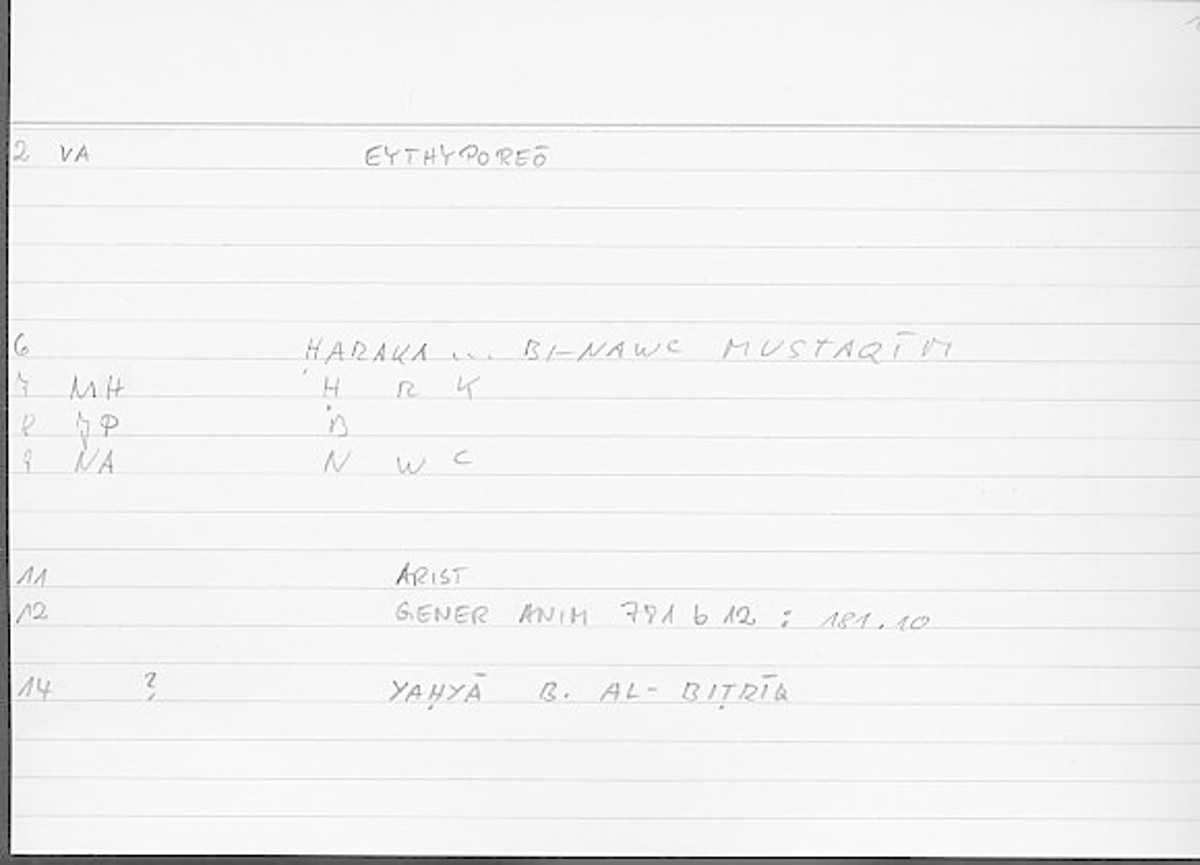 2 VA EYTHYPOREŌ
6 ḤARAKA ... BI-NAWC MUSTAQĪM
7 MH Ḥ R K
8 JP B
9 NA N W C
11 ARIST
12 GENER ANIM 781 b 12 : 181.10
14 ? YAḤYĀ B. AL-BIṬRĪQ